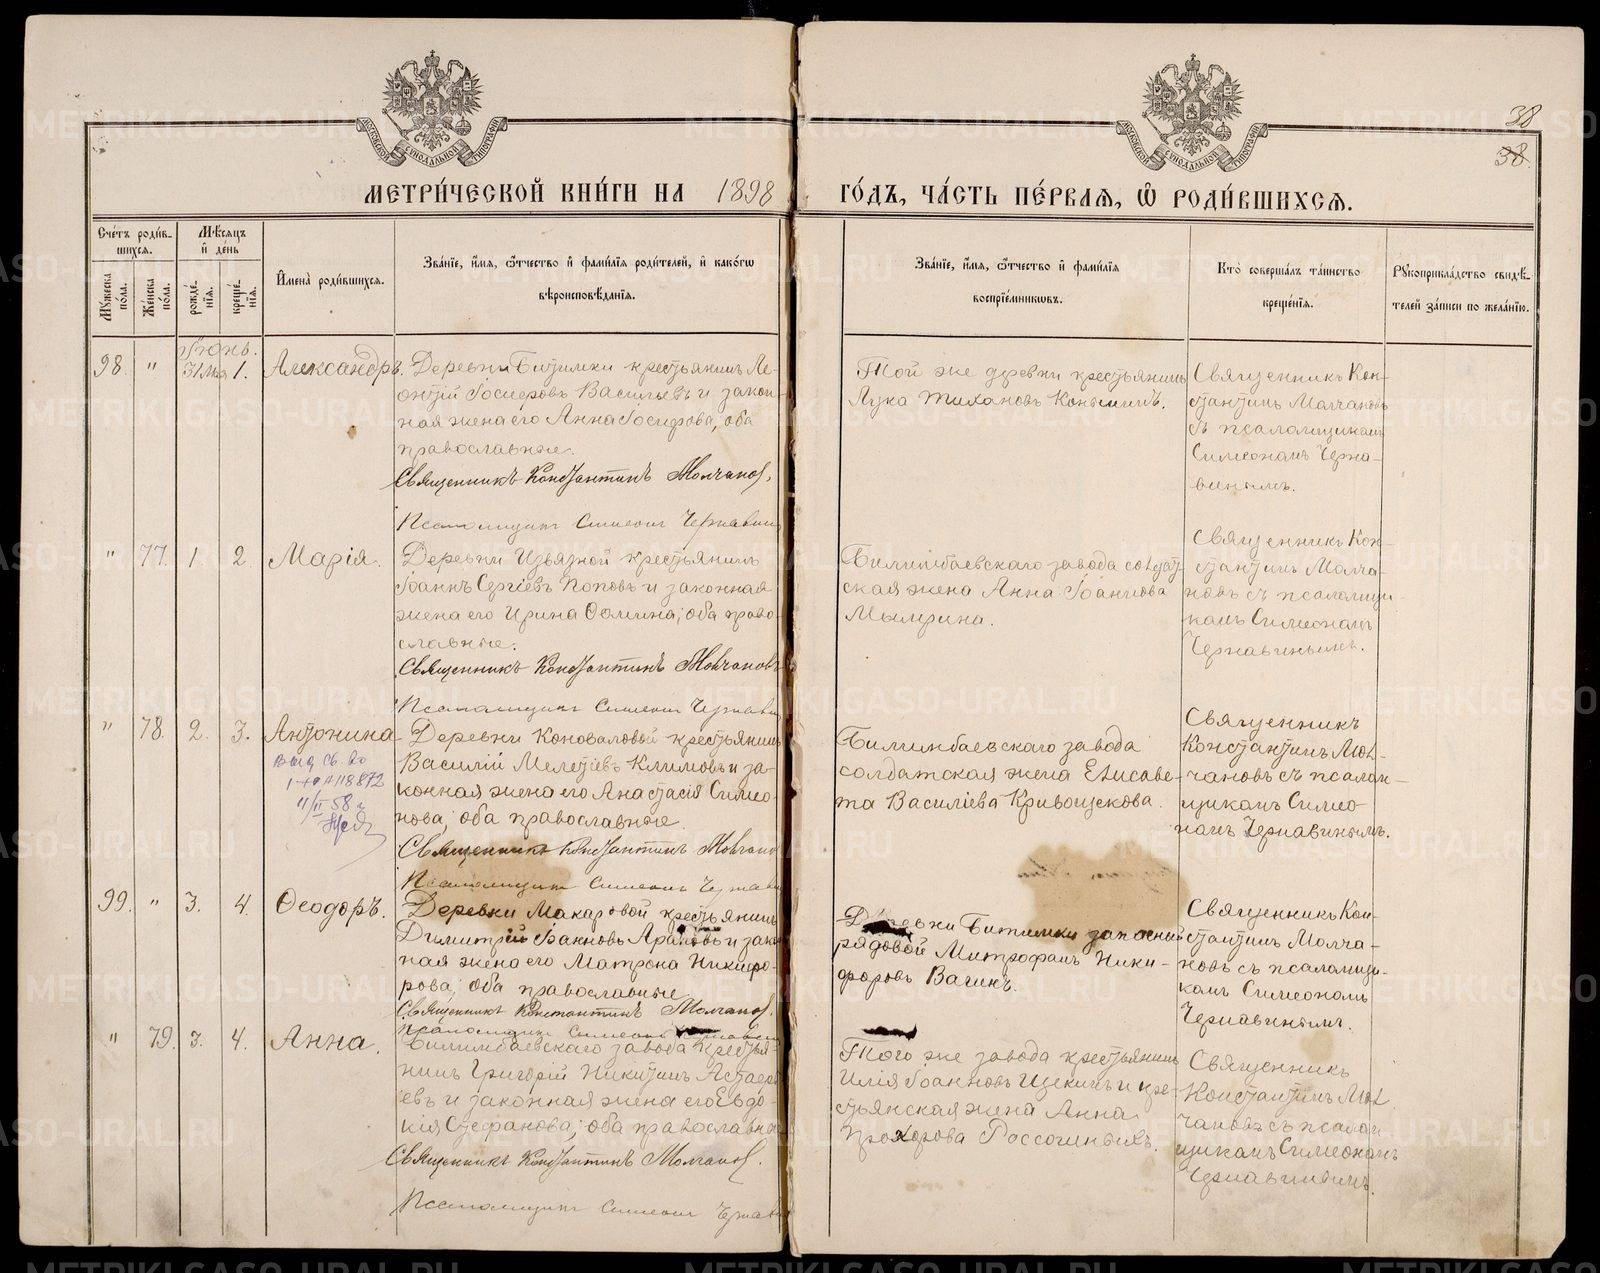 МОСКОВСКОЙ СѴНОДАЛЬНОЙ ТИПОГРАФІИ
МОСКОВСКОЙ СѴНОДАЛЬНОЙ ТИПОГРАФІИ
38
38.
МЕТРИ́ЧЕСКОЙ КНИ́ГИ НА 1898 ГО́ДЪ, ЧА́СТЬ ПЕ́РВАѦ, Ѡ РОДИ́ВШИХСѦ.
Сче́тъ роди́в-
шихся.
Мѣ́сяцъ
и де́нь
Му́жеска по́ла.
Же́нска по́ла.
рожде́-нїя.
креще́-нїя.
Имена̀ роди́вшихся.
Зва́нїе, и́мя, ѻ́тчество и фами́лїя роди́телей, и како́гѡ
вѣроисповѣ́данїя.
Зва́нїе, и́мя, ѻ́тчество и фами́лїя
воспрїе́мникѡвъ.
Кто̀ соверша́лъ та́инство
креще́нїя.
Рꙋкоприкла́дство свидѣ́-
телей за́писи по жела́нїю.
Іюнь.
98. " 31 Мая 1. Александръ.
Деревни Битимки крестьянинъ Ле-
онтій Іосифовъ Васильевъ и закон-
ная жена его Анна Іосифова, оба
православные.
Священникъ Константинъ Молчановъ.
Псаломщикъ Симеонъ Чернавинъ
Той же деревни крестьянинъ
Лука Тихановъ
Священникъ Кон-
стантинъ Молчановъ
съ псаломщикомъ
Симеономъ Черна-
винымъ.
" 77. 1 2. Марія.
Деревни Извязной крестьянинъ
Іоаннъ Сергіевъ Поповъ и законная
жена его Ирина Фомина; оба право-
славные.
Священникъ Константинъ Молчановъ
Псаломщикъ Симеонъ Чернавин
Билимбаевскаго завода солдат-
ская жена Анна Іоаннова
Мымрина.
Священникъ Кон-
стантинъ Молча-
новъ съ псаломщи-
комъ Симеономъ
Чернавинымъ.
" 78. 2. 3. Антонина
Выд св. во
11/II 58 г
Деревни Коноваловой крестьянинъ
Василій Мелетіевъ Климовъ и за-
конная жена его Анастасія Симео-
нова; оба православные.
Священникъ Константинъ Молчанов
Псаломщикъ Симеонъ Чернави
Билимбаевскаго завода
солдатская жена Елисаве-
та Василіева Кривощекова.
Священникъ
Константинъ Мол-
чановъ съ псалом-
щикомъ Симео-
номъ Чернавинымъ.
99. " 3. 4. Ѳеодоръ.
Деревни Макаровой крестьянинъ
Димитрій Іоанновъ Араповъ и закон
ная жена его Матрона Никифо-
рова; оба православные
Священникъ Константинъ Молчановъ.
Псаломщикъ Симеонъ Чернавин
Деревни Битимки запасный
рядовой Митрофанъ Ники-
форовъ Вагинъ.
Священникъ Кон-
стантинъ Молча-
новъ съ псаломщи-
комъ Симеономъ
Чернавинымъ.
" 79. 3. 4. Анна.
Билимбаевскаго завода крестья-
нинъ Григорій Никитинъ Астафь
евъ и законная жена его Евдо-
кія Стефанова; оба православные
Священникъ Константинъ Молчановъ.
Псаломщикъ Симеонъ Чернави
Того же завода крестьянинъ
Илія Іоанновъ Щекинъ и кре-
стьянская жена Анна
Прохорова
Священникъ
Константинъ Мол
чановъ съ псалом
щикомъ Симеономъ
Чернавинымъ.